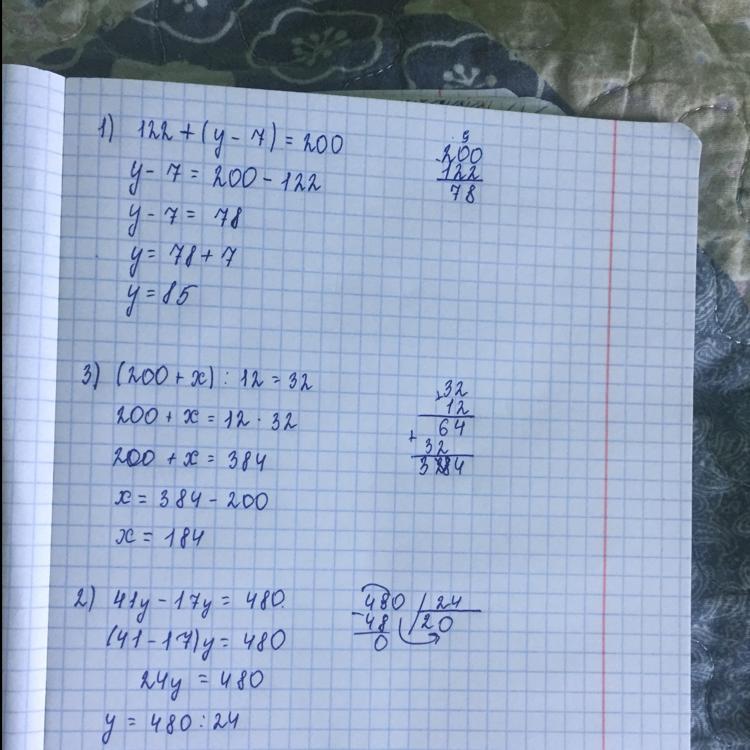 1) 122 + (y - 7) = 200
y - 7 = 200 - 122
y - 7 = 78
y = 78 + 7
y = 85
9
- 200
122
78
3) (200 + x) : 12 = 32
200 + x = 12 · 32
200 + x = 384
x = 384 - 200
x = 184
× 32
12
64
+ 32
384
2) 41y - 17y = 480
(41 - 17)y = 480
24y = 480
y = 480 : 24
- 480 | 24
48 | 20
0